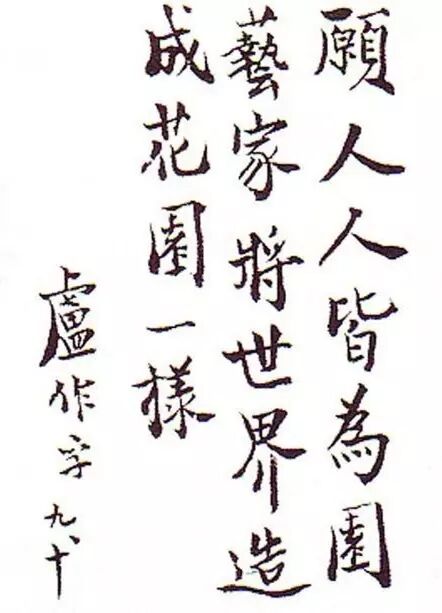 願人人皆為園
藝家將世界造
成花園一樣
盧作孚 九、十